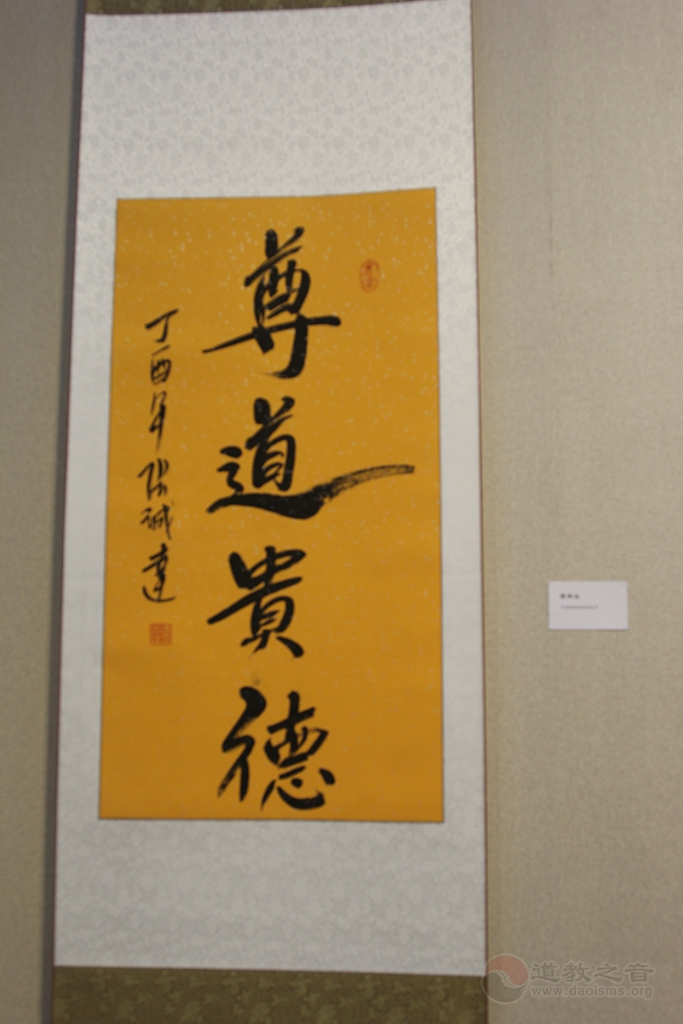 尊道貴德
丁酉年張誠達
道教之音
www.daoisms.org